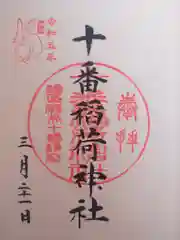 奉拝
十番稲荷神社
令和五年
三月二十一日